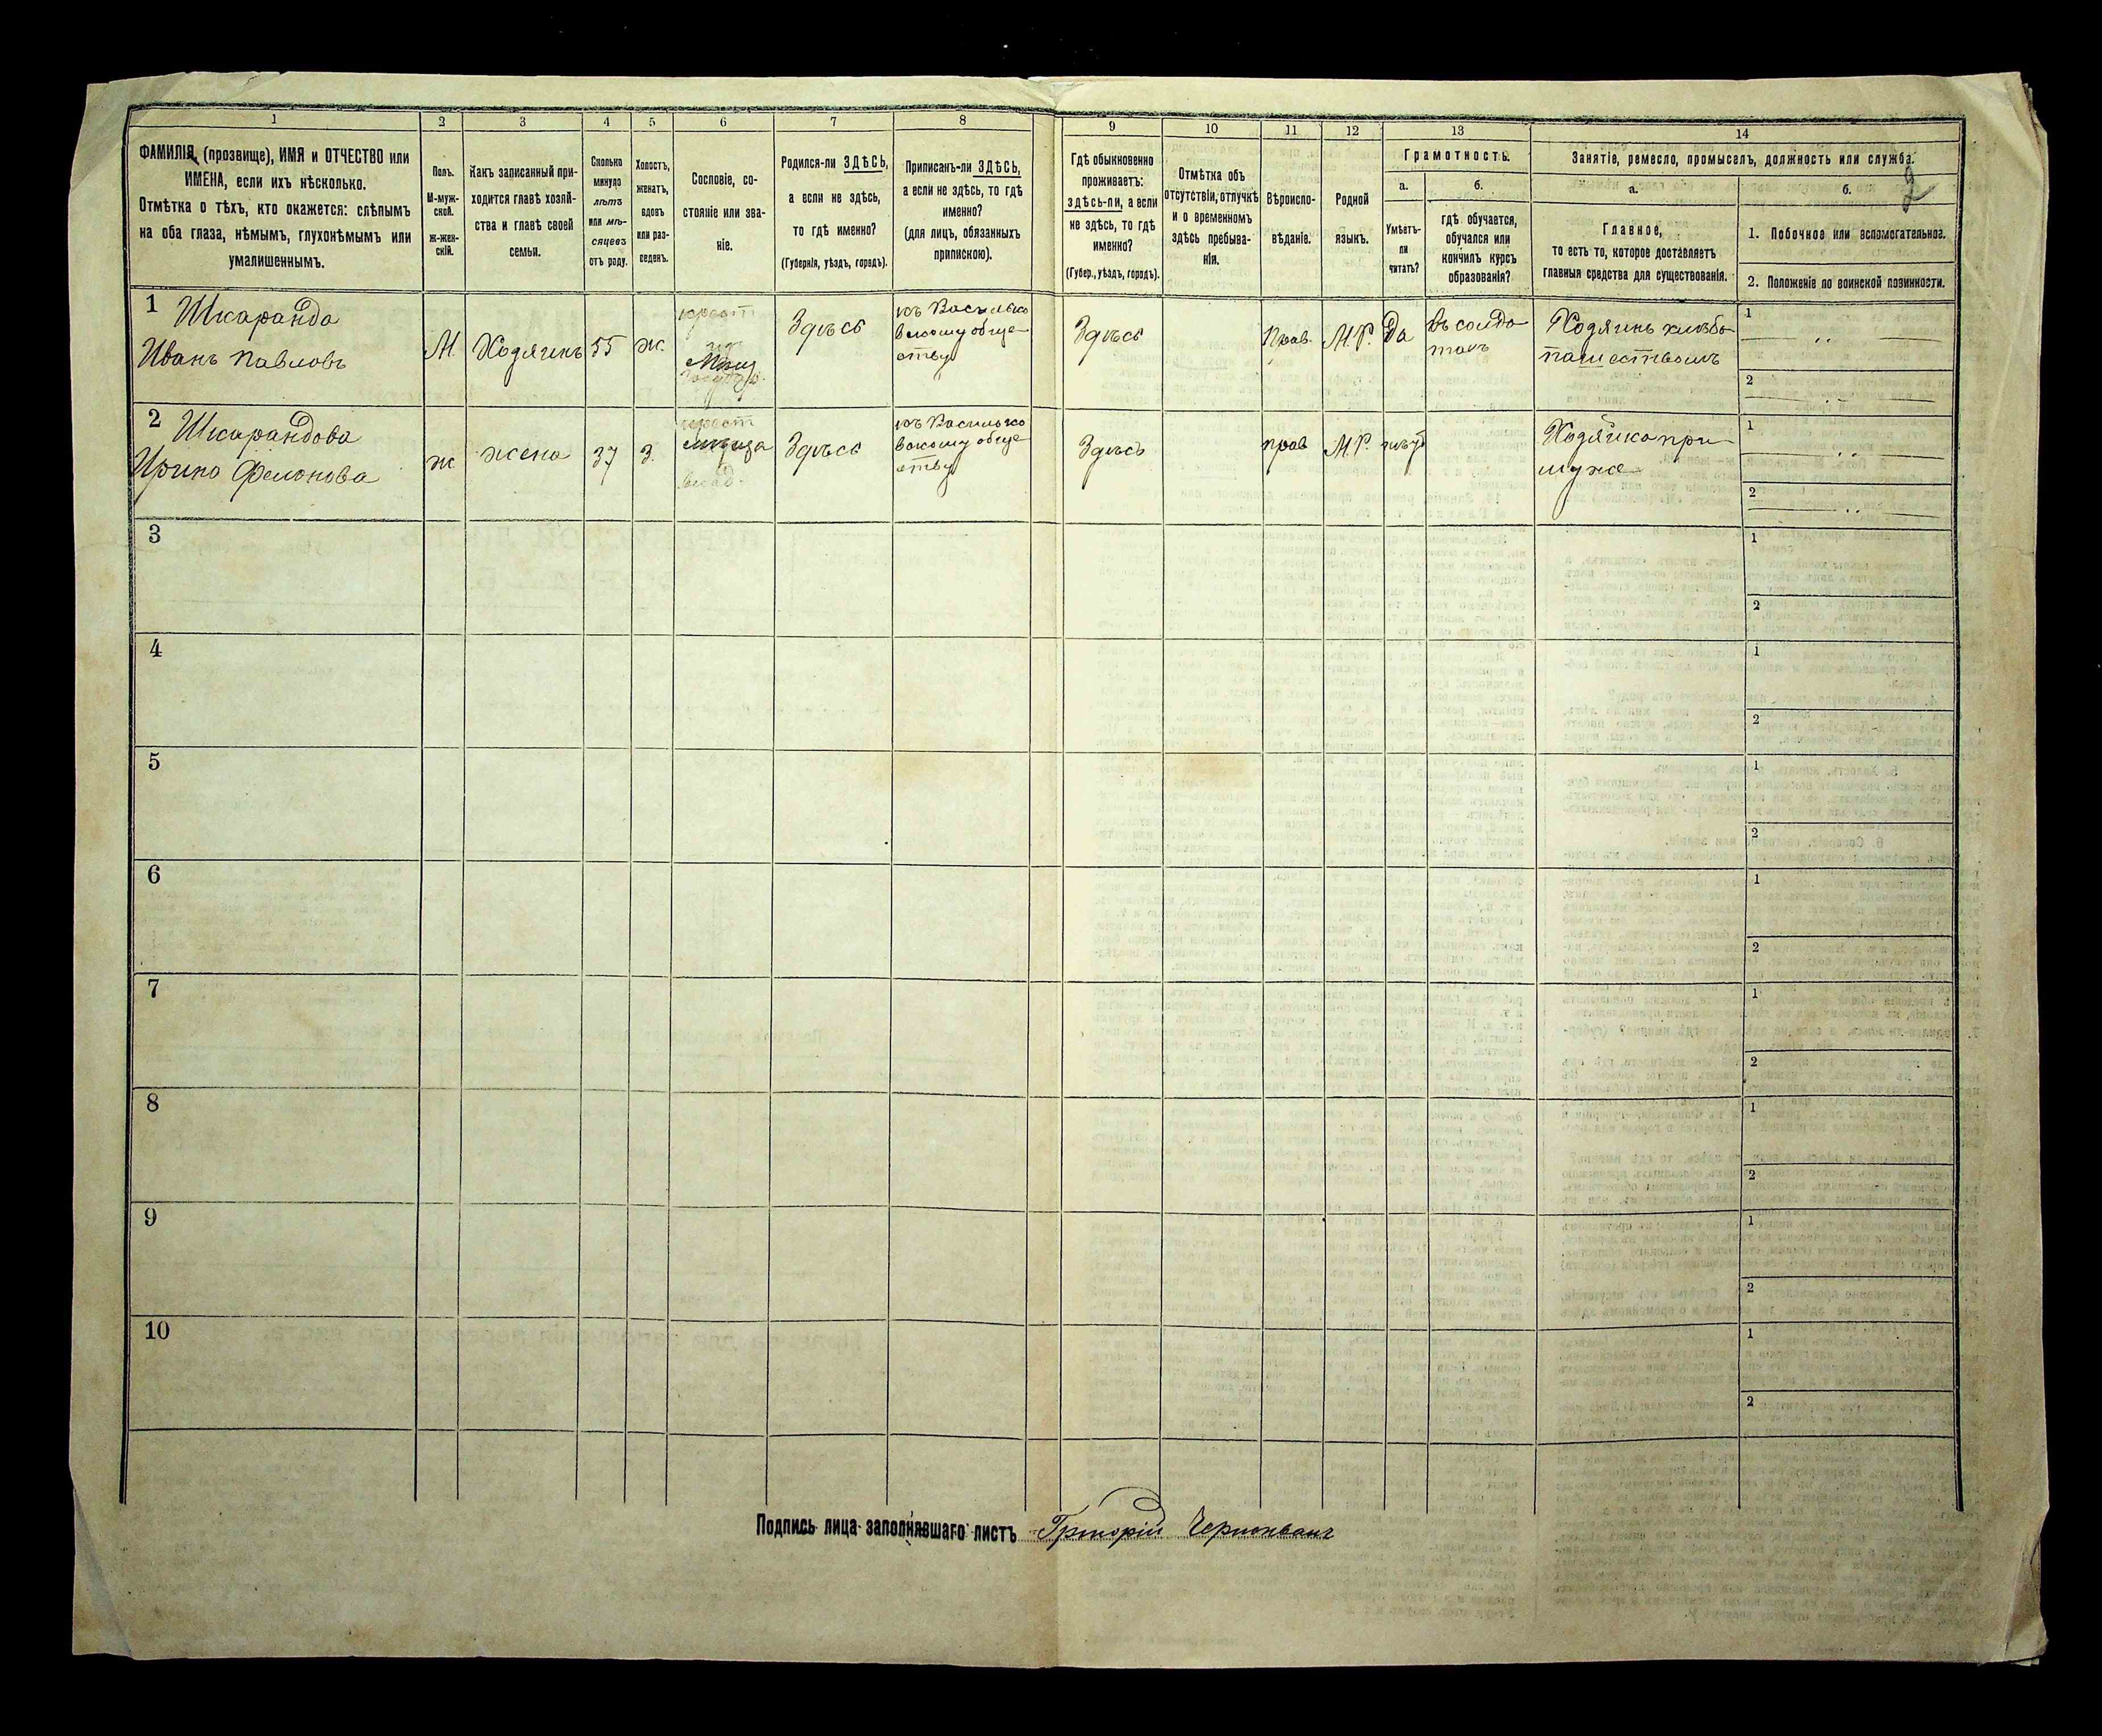 1
2
3
4
5
6
7
8
9
10
11
12
13
14
ФАМИЛІЯ, (прозвище), ИМЯ и ОТЧЕСТВО или
ИМЕНА, если ихъ нѣсколько.
Отмѣтка о тѣхъ, кто окажется: слѣпымъ
на оба глаза, нѣмымъ, глухонѣмымъ или
умалишеннымъ.
Полъ.
М-муж-
ской.
Ж-жен-
скій.
Какъ записанный при-
ходится главѣ хозяй-
ства и главѣ своей
семьи.
Сколько
минуло
лѣтъ
или мѣ-
сяцевъ
отъ роду.
Холостъ,
женатъ,
вдовъ
или раз-
веденъ.
Сословіе, со-
стояніе или зва-
ніе.
Родился-ли ЗДѢСЬ,
а если не здѣсь,
то гдѣ именно?
(Губернія, уѣздъ, городъ).
Приписанъ-ли ЗДѢСЬ,
а если не здѣсь, то гдѣ
именно?
(для лицъ, обязанныхъ
припискою).
Гдѣ обыкновенно
проживаетъ:
здѣсь-ли, а если
не здѣсь, то гдѣ
именно?
(Губер., уѣздъ, городъ).
Отмѣтка объ
отсутствіи, отлучкѣ
и о временномъ
здѣсь пребыва-
ніи.
Вѣроиспо-
вѣданіе.
Родной
языкъ.
Грамотность.
а.
Умѣетъ-
ли
читать?
б.
гдѣ обучается,
обучался или
кончилъ курсъ
образованія?
Занятіе, ремесло, промыселъ, должность или служба.
2
а.
Главное,
то есть то, которое доставляетъ
главныя средства для существованія.
б.
1. Побочное или вспомогательное.
2. Положеніе по воинской повинности.
1 Шкаранда
Иванъ Павловъ
М.
Хозяинъ
55
ж.
крест
Здѣсь
къ Василько
вскому обще
ству
Здѣсь
Прав.
М.Р.
Да
въ солда
тахъ
Хозяинъ хлѣбо
пашествомъ
1
2
2 Шкарандова
Ирина
ж
жена
37
з.
крест
Здѣсь
къ Василько
вскому обще
ству
Здѣсь
прав
М.Р.
нѣтъ
Хозяйка при
мужѣ
1
2
3
1
2
4
1
2
5
1
2
6
1
2
7
1
2
8
1
2
9
1
2
10
1
2
Подпись лица заполнявшаго листъ Григорій